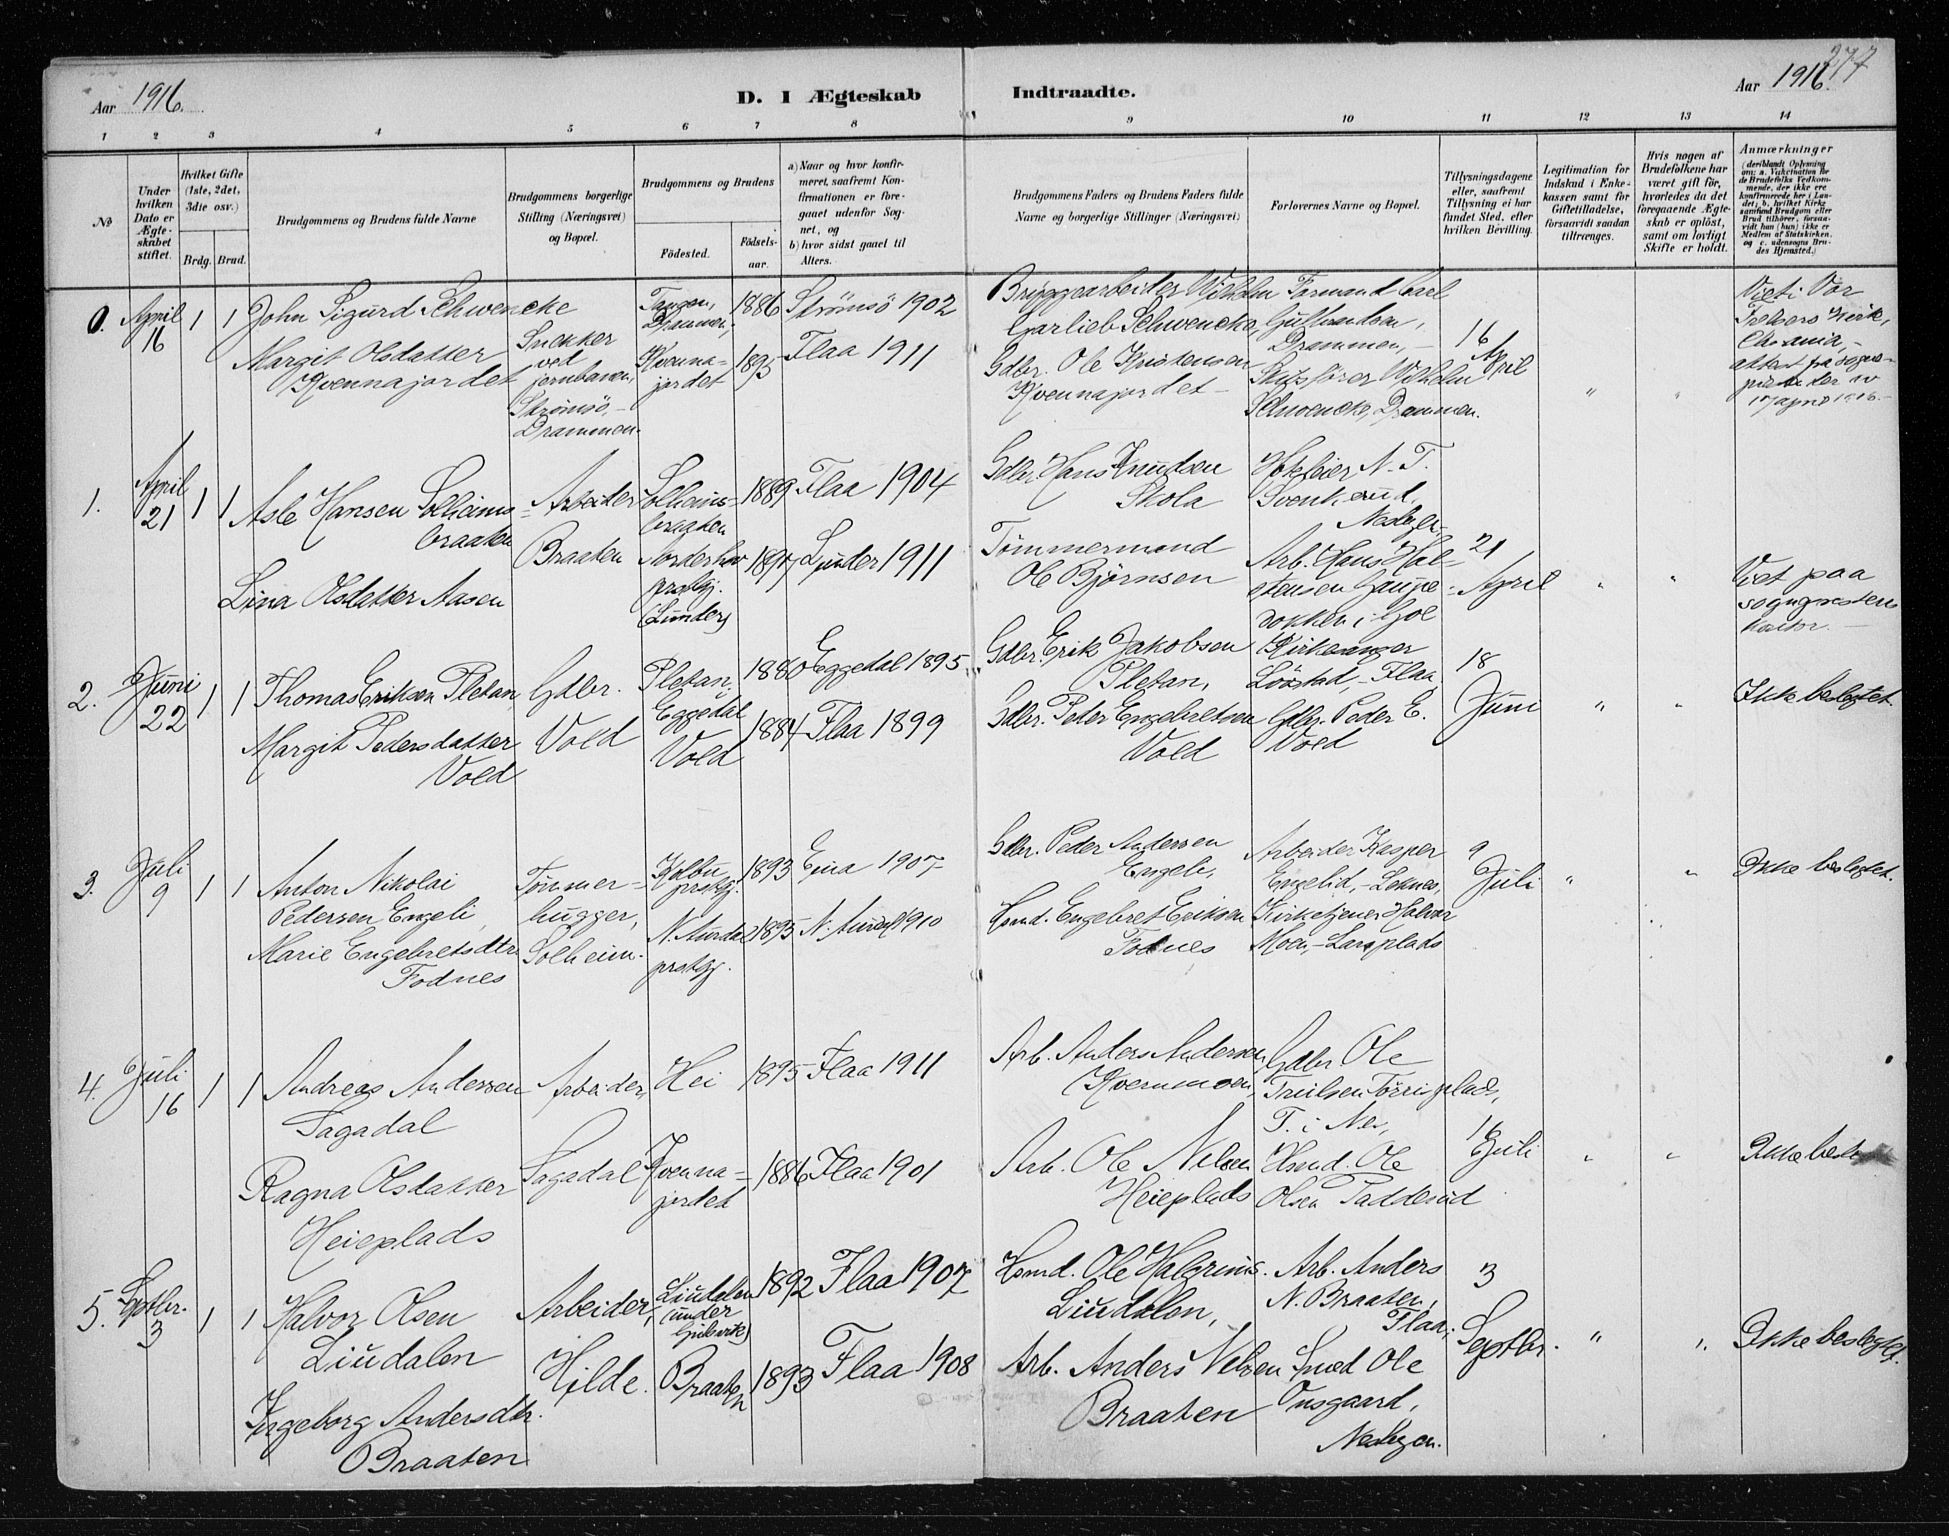 277
Aar 1916.
D. I Ægteskab Indtraadte.
Aar 1916.
1 2 3 4 5 6 7 8 9 10 11 12 13 14
No
Under hvilken Dato er Ægteskabet stiftet.
Hvilket Gifte (1ste, 2det, 3die osv.)
Brdg. Brud.
Brudgommens og Brudens fulde Navne
Brudgommens borgerlige Stilling (Næringsvei) og Bopæl.
Brudgommens og Brudens
Fødested.
Fødselsaar.
a) Naar og hvor konfirmeret, saafremt Konfirmationen er foregaaet udenfor Sognet, og
b) hvor sidst gaaet til Alters.
Brudgommens Faders og Brudens Faders fulde Navne og borgerlige Stillinger (Næringsvei)
Forlovernes Navne og Bopæl.
Tillysningsdagene eller, saafremt Tillysning ei har fundet Sted, efter hvilken Bevilling.
Legitimation for Indskud i Enkekassen samt for Giftetilladelse, forsaavidt saadan tiltrænges.
Hvis nogen af Brudefolkene har været gift før, hvorledes da det foregaaende Ægteskab er opløst, samt om lovligt Skifte er holdt.
Anmærkninger
0.
April
16
1 1
John Sigurd Schwencke
Margit Olsdatter
Kvennajordet
Snekker
ved
jernbanen,
Strömsö, -
Drammen.
Tangen,
Drammen,
Kvenna-
jordet
1886
1895
Strömsö 1902
Flaa 1911
Bryggearbeider Wilhelm
Garlieb Schwencke,
Gdbr. Ole Kristensen
Kvennajordet -
Formand Carl
Gulbrandsen,
Drammen, -
Wilhelm
Schwencke, Drammen.
16
April
"
"
Viet i Vor
Frelsers Kirk,
Chrania, -
17 april 1916. -
1.
April
21
1 1
Asle Hansen Solheims-
braaten
Lina Olsdatter Aasen
Arbeider
Braaten
Solheims-
braaten
Norderhov
prstgj.
(Lunder)
1889
1897
Flaa 1904
Lunder 1911
Gdbr. Hans Knudsen
Skola
Tömmermand
Ole Björnsen
N. T.
Svenkerud,
Nesbyen -
Arb. Hans Hal-
stensen Gaupe-
dokken i Gol
21
April
"
"
Viet paa
sogneprestens
kontor. -
2.
Juni
22
1 1
Thomas Eriksen Pletan
Margit Pedersdatter
Vold
Gdbr.
Vold
Pletan,
Eggedal
Vold
1880
1884
Eggedal 1895
Flaa 1899
Gdbr. Erik Jakobsen
Pletan,
Gdbr. Peter Engebretsen
Vold
Kirkesanger
Löstad, - Flaa,
Gdbr. Peder E.
Vold
18
Juni
"
"
Ikke beslegtet.
3.
Juli
9
1 1
Anton Nikolai
Pedersen Engeli,
Marie Engebretsdtr
Fodnes
Tömmer-
hugger,
Solheim.
Kolbu
prstgj.
N. Aurdal
prstgj.
1893
1895
Eina 1907
N. Aurdal 1910
Gdbr. Peder Andersen
Engeli,
Hsmd. Engebret Eriksen
Fodnes
Arbeider Kasper
Engelid, -
Kirketjener Halvor
Moen, - Larsplads
9
Juli
"
"
Ikke beslegtet.
4.
Juli
16
1 1
Andreas Andersen
Sagadal
Ragna Olsdatter
Heieplads
Arbeider,
Sagadal
Hei
Kvenna-
jordet
1895
1886
Flaa 1911
Flaa 1901
Arb. Anders Andersen
Kvernmoen,
Arb. Ole Nilsen
Heieplads
Gdbr. Ole
Truilsen
T. i Nes,
Hsmd. Ole
Olsen Padderud
16
Juli
"
"
Ikke
5.
Septbr.
3
1 1
Halvor Olsen
Liudalen
Ingeborg Andersdtr.
Braaten
Arbeider,
Hilde.
Liudalen
(under
Gulsvik)
Braaten
1892
1893
Flaa 1907
Flaa 1908
Hsmd. Ole Halgrims.
Liudalen,
Arb. Anders Nilsen
Braaten
Arb. Anders
N. Braaten,
Flaa,
Smed Ole
Onsgaard,
Nesbyen.
3
Septbr.
"
"
Ikke beslegtet.